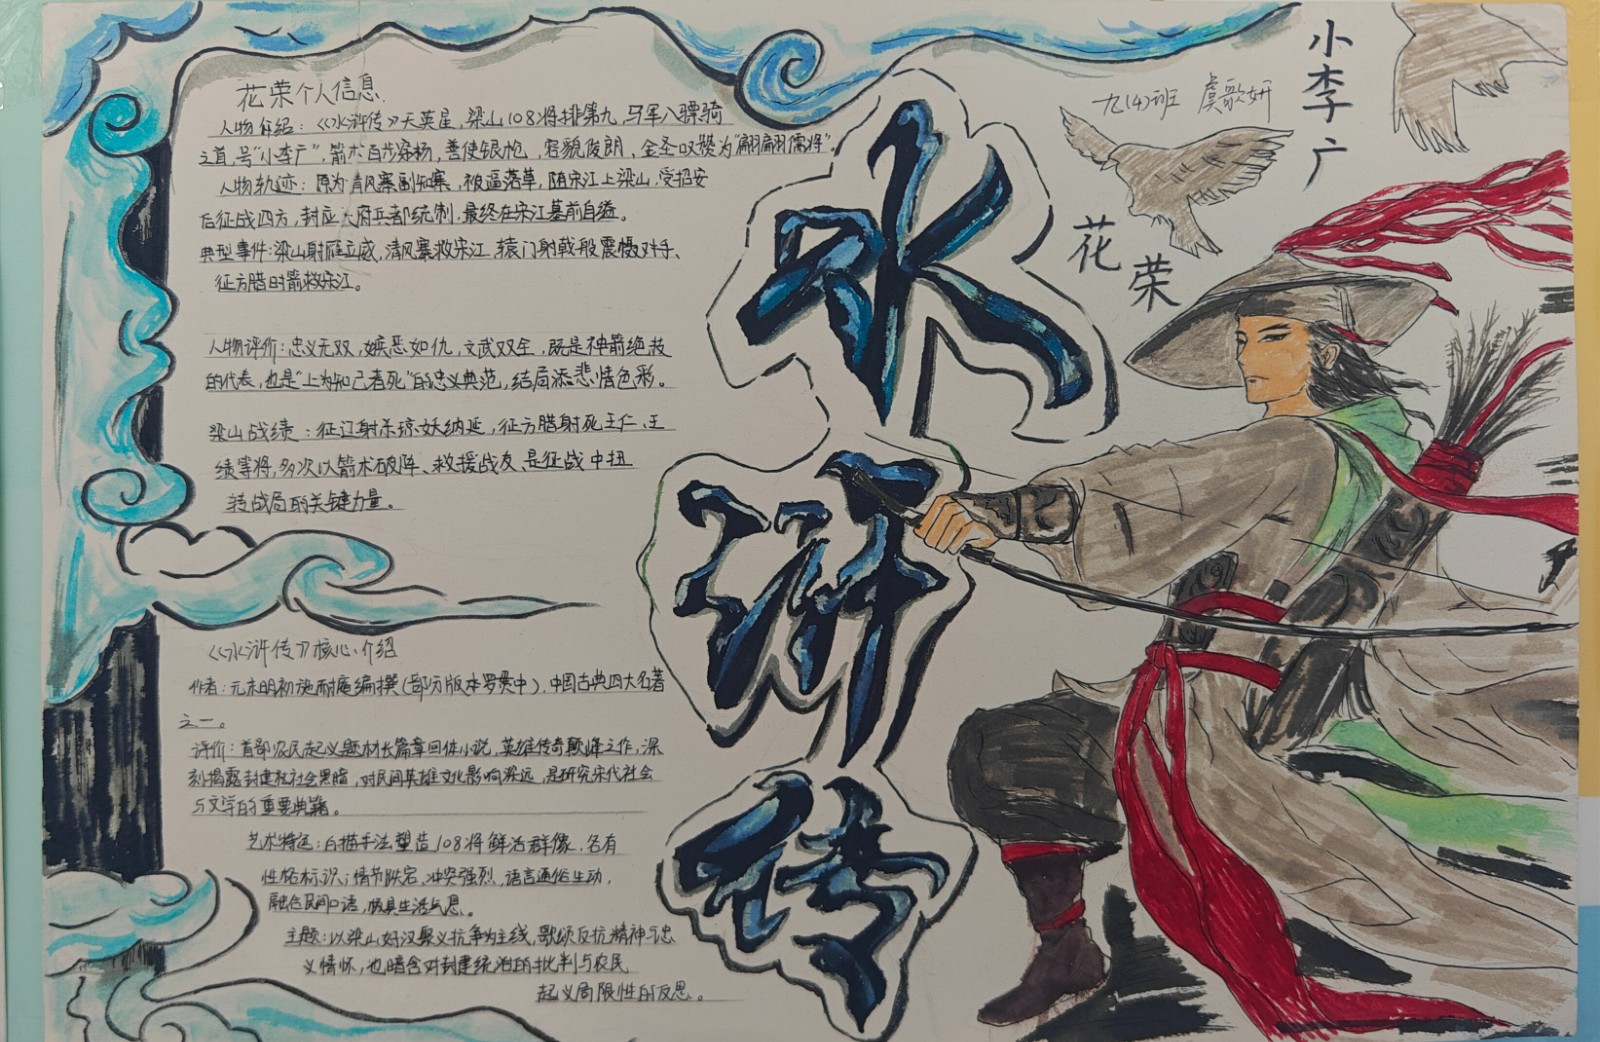 花荣个人信息
人物介绍：《水浒传》天英星，梁山108将排第九，马军八骠骑
之首，号“小李广”，箭术百步穿杨，善使银枪，容貌俊朗、金圣叹赞为“翩翩儒将”。
人物轨迹：原为清风寨副知寨，被逼落草，随宋江上梁山，受招安
后征战四方，封应天府兵都统制，最终在宋江墓前自缢。
典型事件：梁山射雁立威，清风寨救宋江，辕门射戟般震慑对手、
征方腊时箭救宋江。
人物评价：忠义无双，嫉恶如仇，文武双全，既是神箭绝技
的代表，也是“士为知己者死”的忠义典范，结局添悲情色彩。
梁山战绩：征辽射杀琼妖纳延，征方腊射死王仁、王
绩等将，多次以箭术破阵、救援战友、是征战中扭
转战局的关键力量。
《水浒传》核心介绍
作者：元末明初施耐庵编撰（部分版本罗贯中），中国古典四大名著
之一。
评价：首部农民起义题材长篇章回体小说，英雄传奇巅峰之作，深
刻揭露封建社会黑暗，对民间英雄文化影响深远，是研究宋代社会
与文学的重要典籍。
艺术特色：白描手法塑造108将鲜活群像，各有
性格标识；情节跌宕、冲突强烈，语言通俗生动，
融合民间口语，极具生活气息。
主题：以梁山好汉聚义抗争为主线，歌颂反抗精神与忠
义情怀，也暗含对封建统治的批判与农民
起义局限性的反思。
水浒传
九(4)班 虞歌妍
小李广
花荣